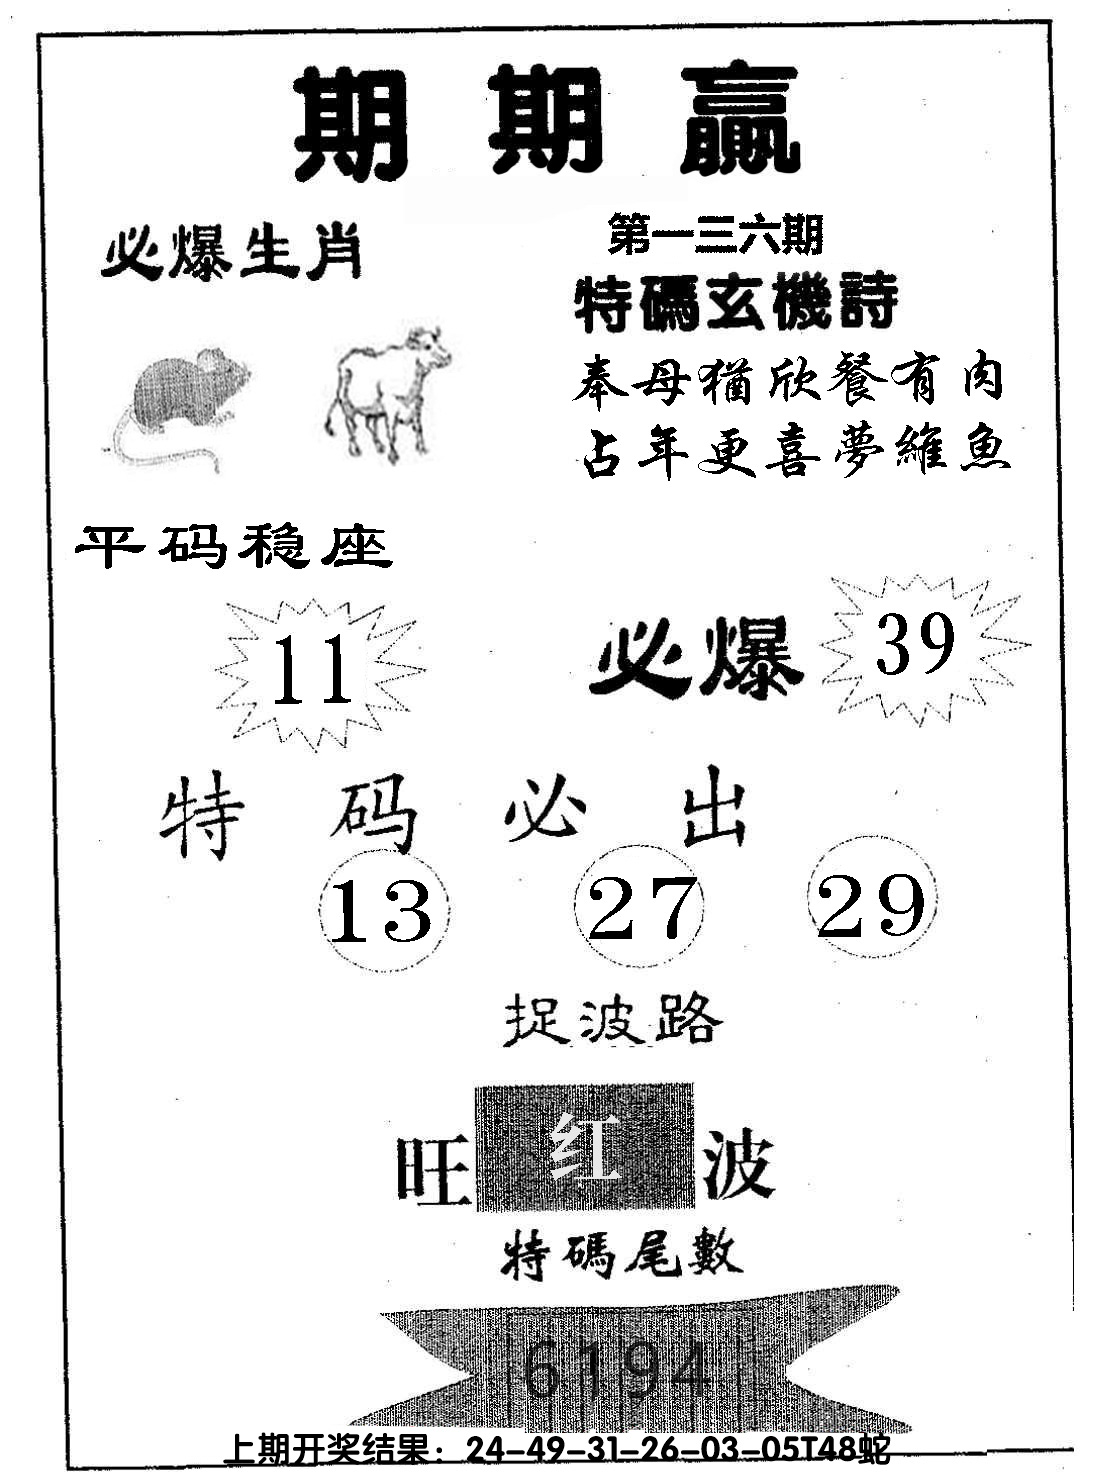 期期贏
必爆生肖
第一三六期
特碼玄機詩
奉母猶欣餐有肉
占年更喜夢維魚
平码稳座
11
必爆 39
特码必出
13 27 29
捉波路
旺红波
特碼尾數
6194
上期开奖结果：24-49-31-26-03-05T48蛇